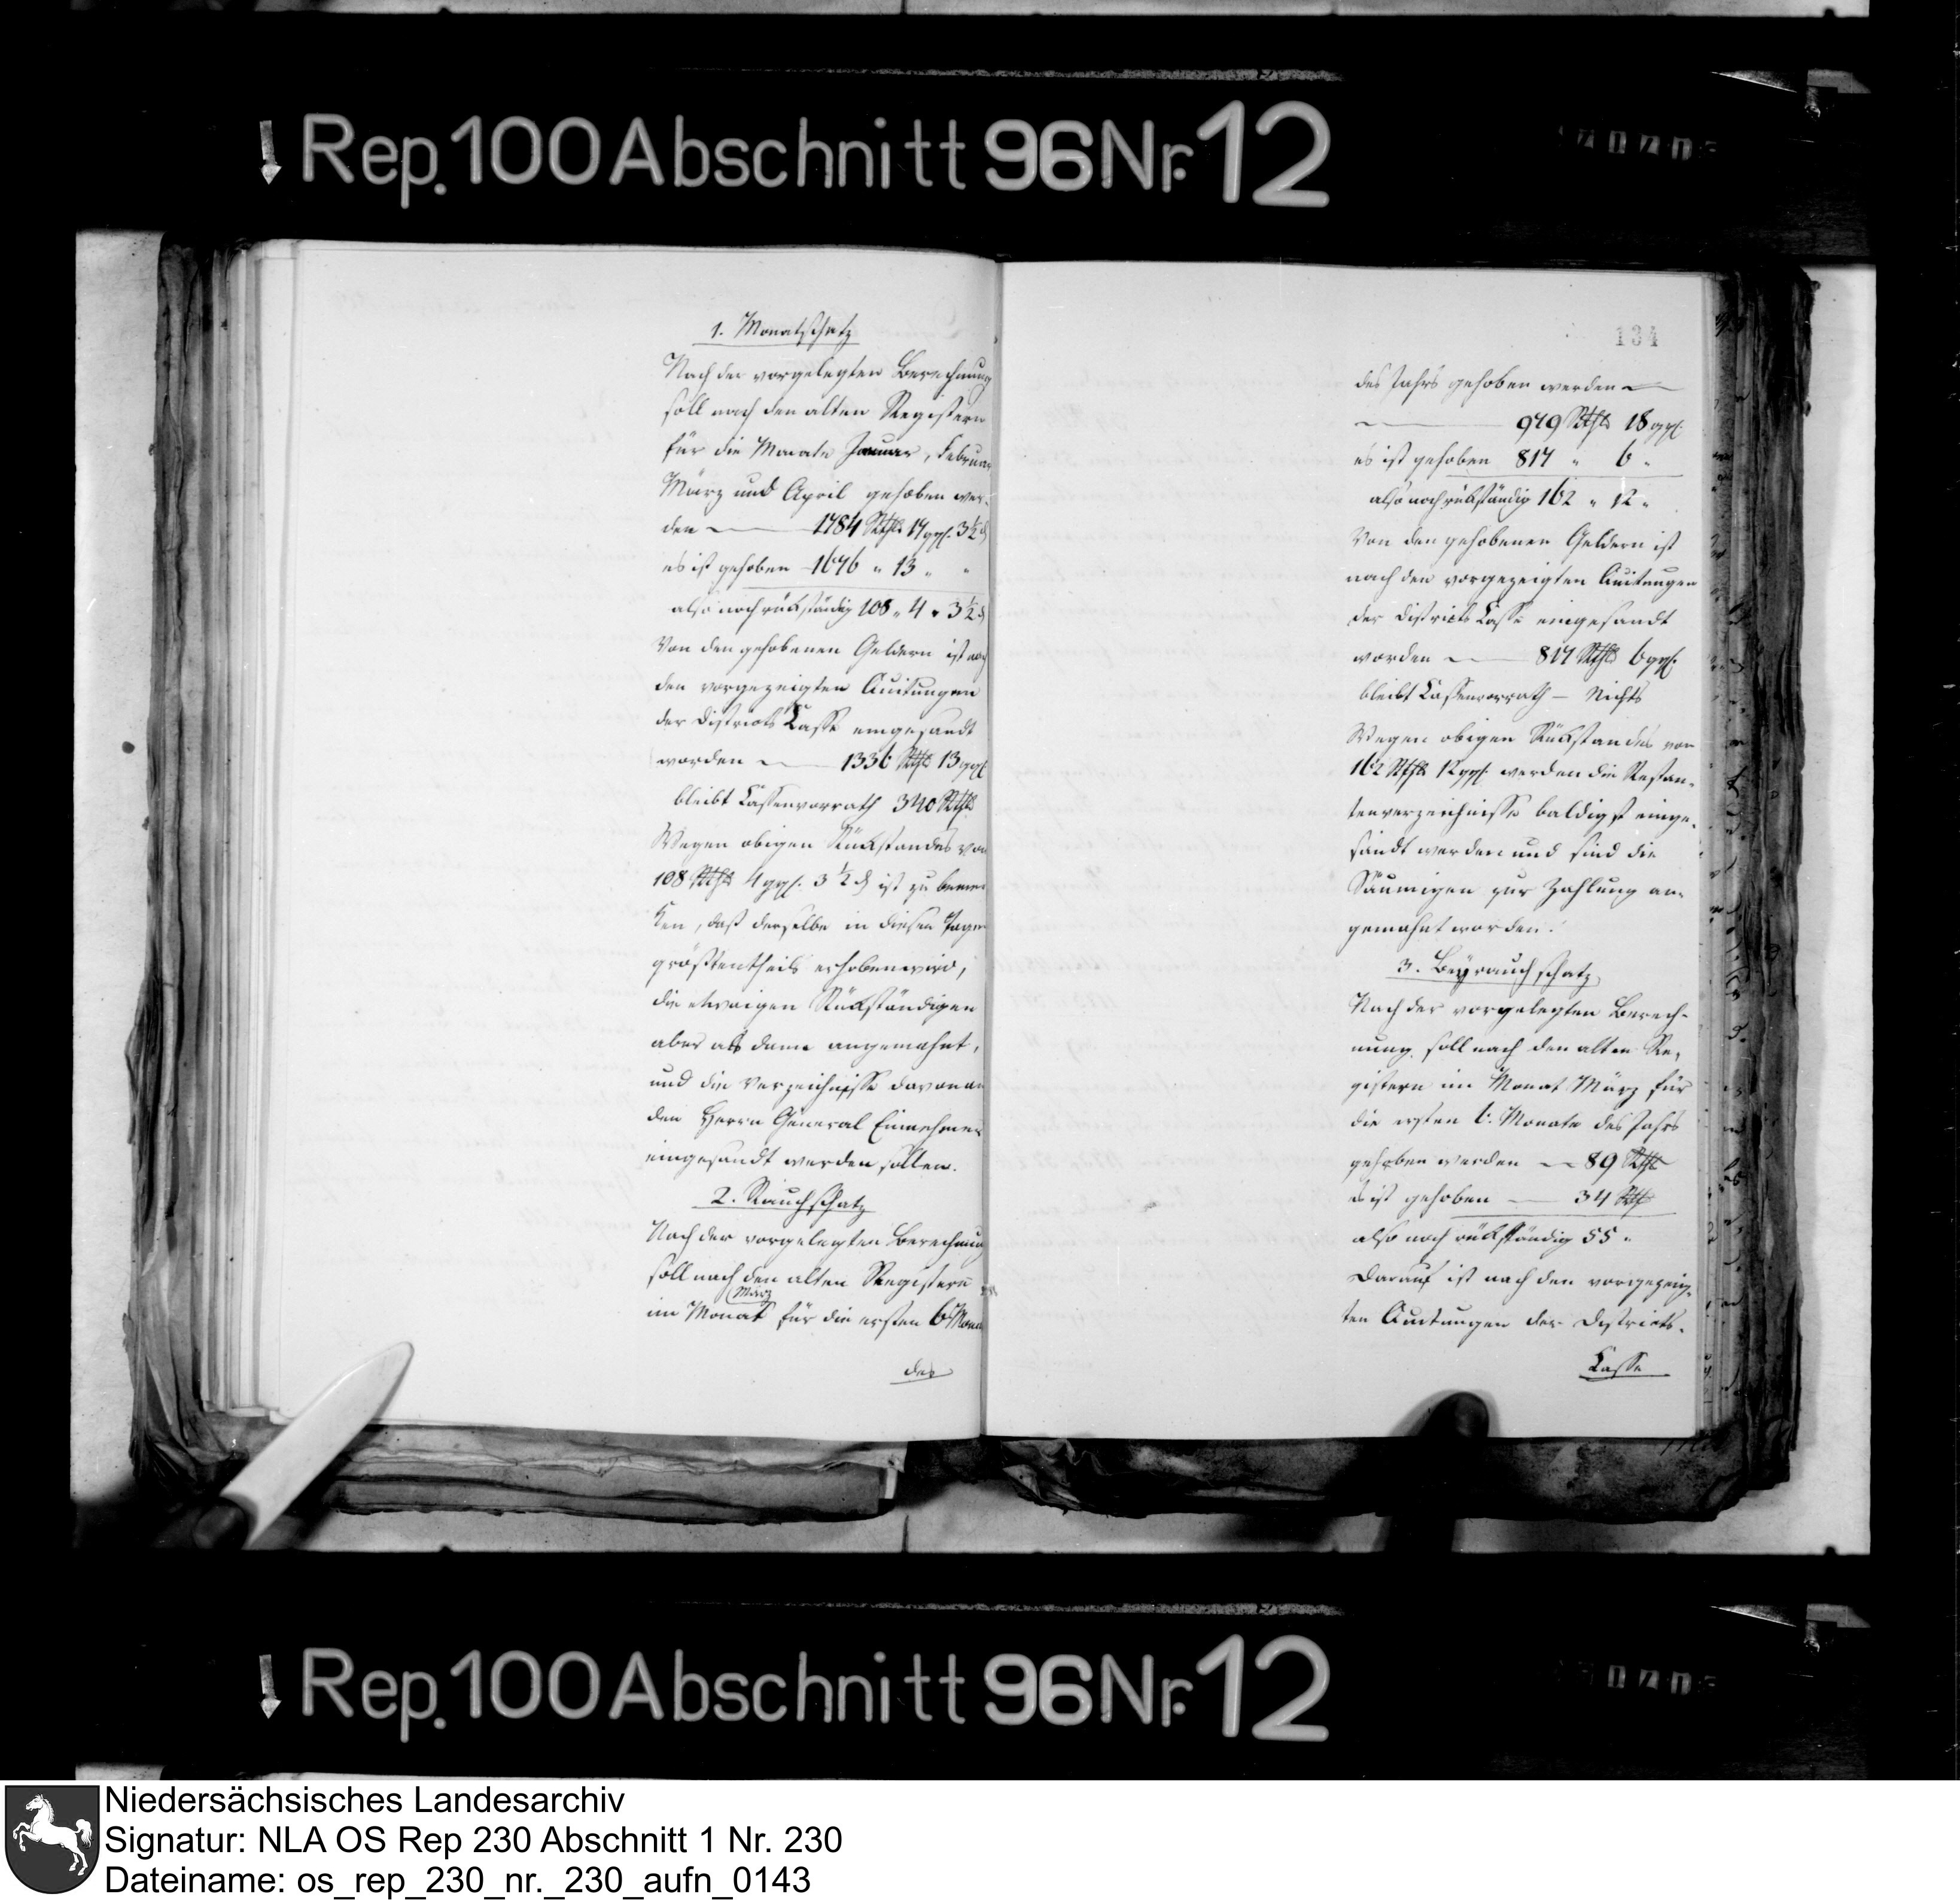 Rep. 100 Abschnitt 96 Nr. 12
1. Monatschatz
Nach der vorgelegten Berechnung
soll nach den alten Registern
für die Monate Januar, Februar
März und April gehoben wer-
den — 1784 Rthlr 17 ggl. 3½ d
es ist gehoben 1676 " 13 " "
also noch rükständig 108 " 4 " 3½ d
Von den gehobenen Geldern ist nach
den vorgezeigten Quitungen
der Districts Casse eingesandt
worden — 1336 Rthlr 13 ggl
bleibt Cassenvorrath 340 Rthlr
Wegen obigen Rükstandes von
108 Rthlr 4 ggl. 3½ d ist zu bemer-
ken, daß derselbe in diesen Tagen
größtentheils erhoben wird,
die etwaigen Rükständigen
aber als dann angemahnt,
und die Verzeichnisse davon an
den Herrn General Einnehmer
eingesandt werden sollen.
2. Rauchschatz
Nach der vorgelegten Berechnung
soll nach den alten Registern
März
im Monat für die ersten 6 Monate
des
134
des Jahrs gehoben werden —
— 979 Rthlr 18 ggl.
es ist gehoben 817 " 6 "
also noch rükständig 162 " 12 "
Von den gehobenen Geldern ist
nach den vorgezeigten Quitungen
der Districts Casse eingesandt
worden — 817 Rthlr 6 ggl.
bleibt Cassenvorrath — Nichts
Wegen obigen Rükstandes von
162 Rthlr 12 ggl. werden die Restan-
tenverzeichnisse baldigst einge-
sandt werden und sind die
Säumigen zur Zahlung an-
gemahnt worden.
3. Beyrauchschatz
Nach der vorgelegten Berech-
nung soll nach den alten Re-
gistern im Monat März für
die ersten 6. Monate des Jahrs
gehoben werden — 89 Rthlr
Es ist gehoben — 34 Rthlr
also noch rükständig 55 "
Darauf ist nach den vorgezeig-
ten Quitungen der Districts-
Casse
Rep. 100 Abschnitt 96 Nr. 12
Niedersächsisches Landesarchiv
Signatur: NLA OS Rep 230 Abschnitt 1 Nr. 230
Dateiname: os_rep_230_nr._230_aufn_0143